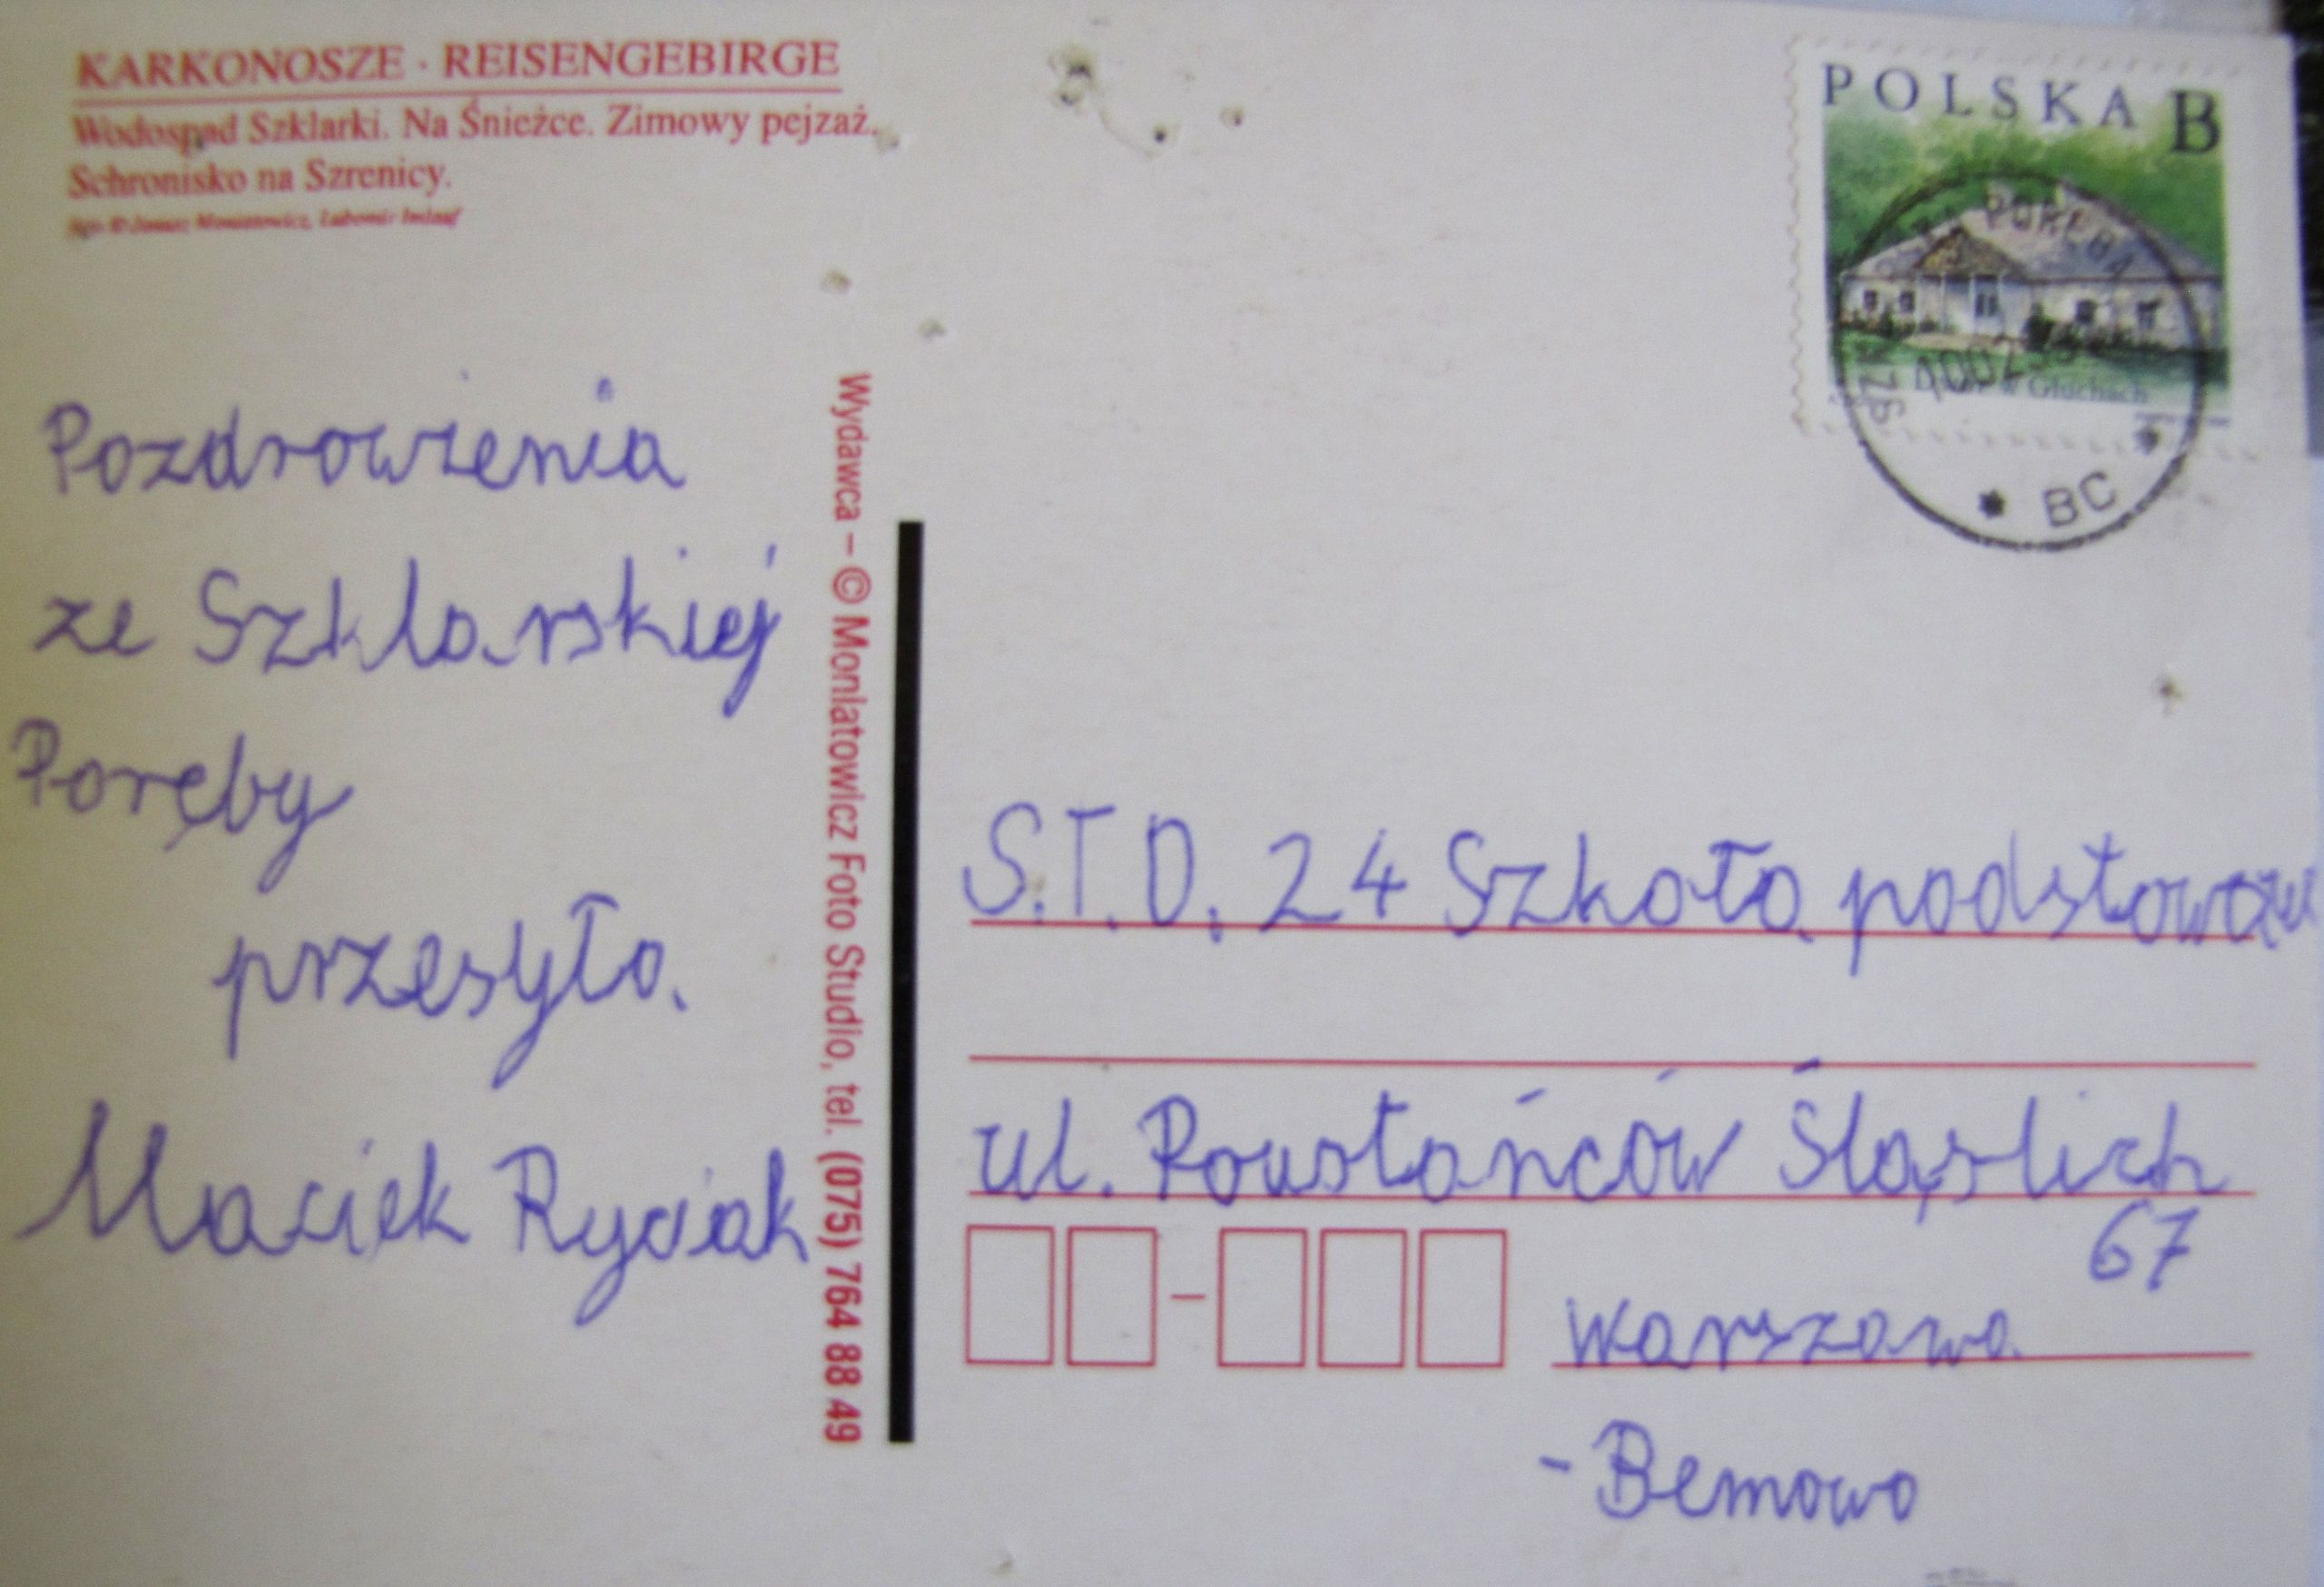 KARKONOSZE · REISENGEBIRGE
Wodospad Szklarki. Na Śnieżce. Zimowy pejzaż.
Schronisko na Szrenicy.
POLSKA B
PORĘBA
w Głuchach
* BC *
Pozdrowienia
ze Szklarskiej
Poręby
przesyła
Maciek Ryciak
Wydawca – © Moniatowicz Foto Studio, tel. (075) 764 88 49
S.T.D. 24 Szkoła podstawow
ul. Powstańców Śląslich
67
Warszawa
- Bemowo